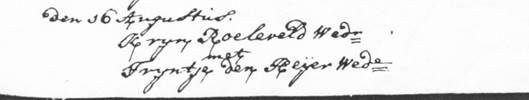 den 16 Augustus.
Kryn Roeleveld Wedr
met
Tryntje den Heijer Wede